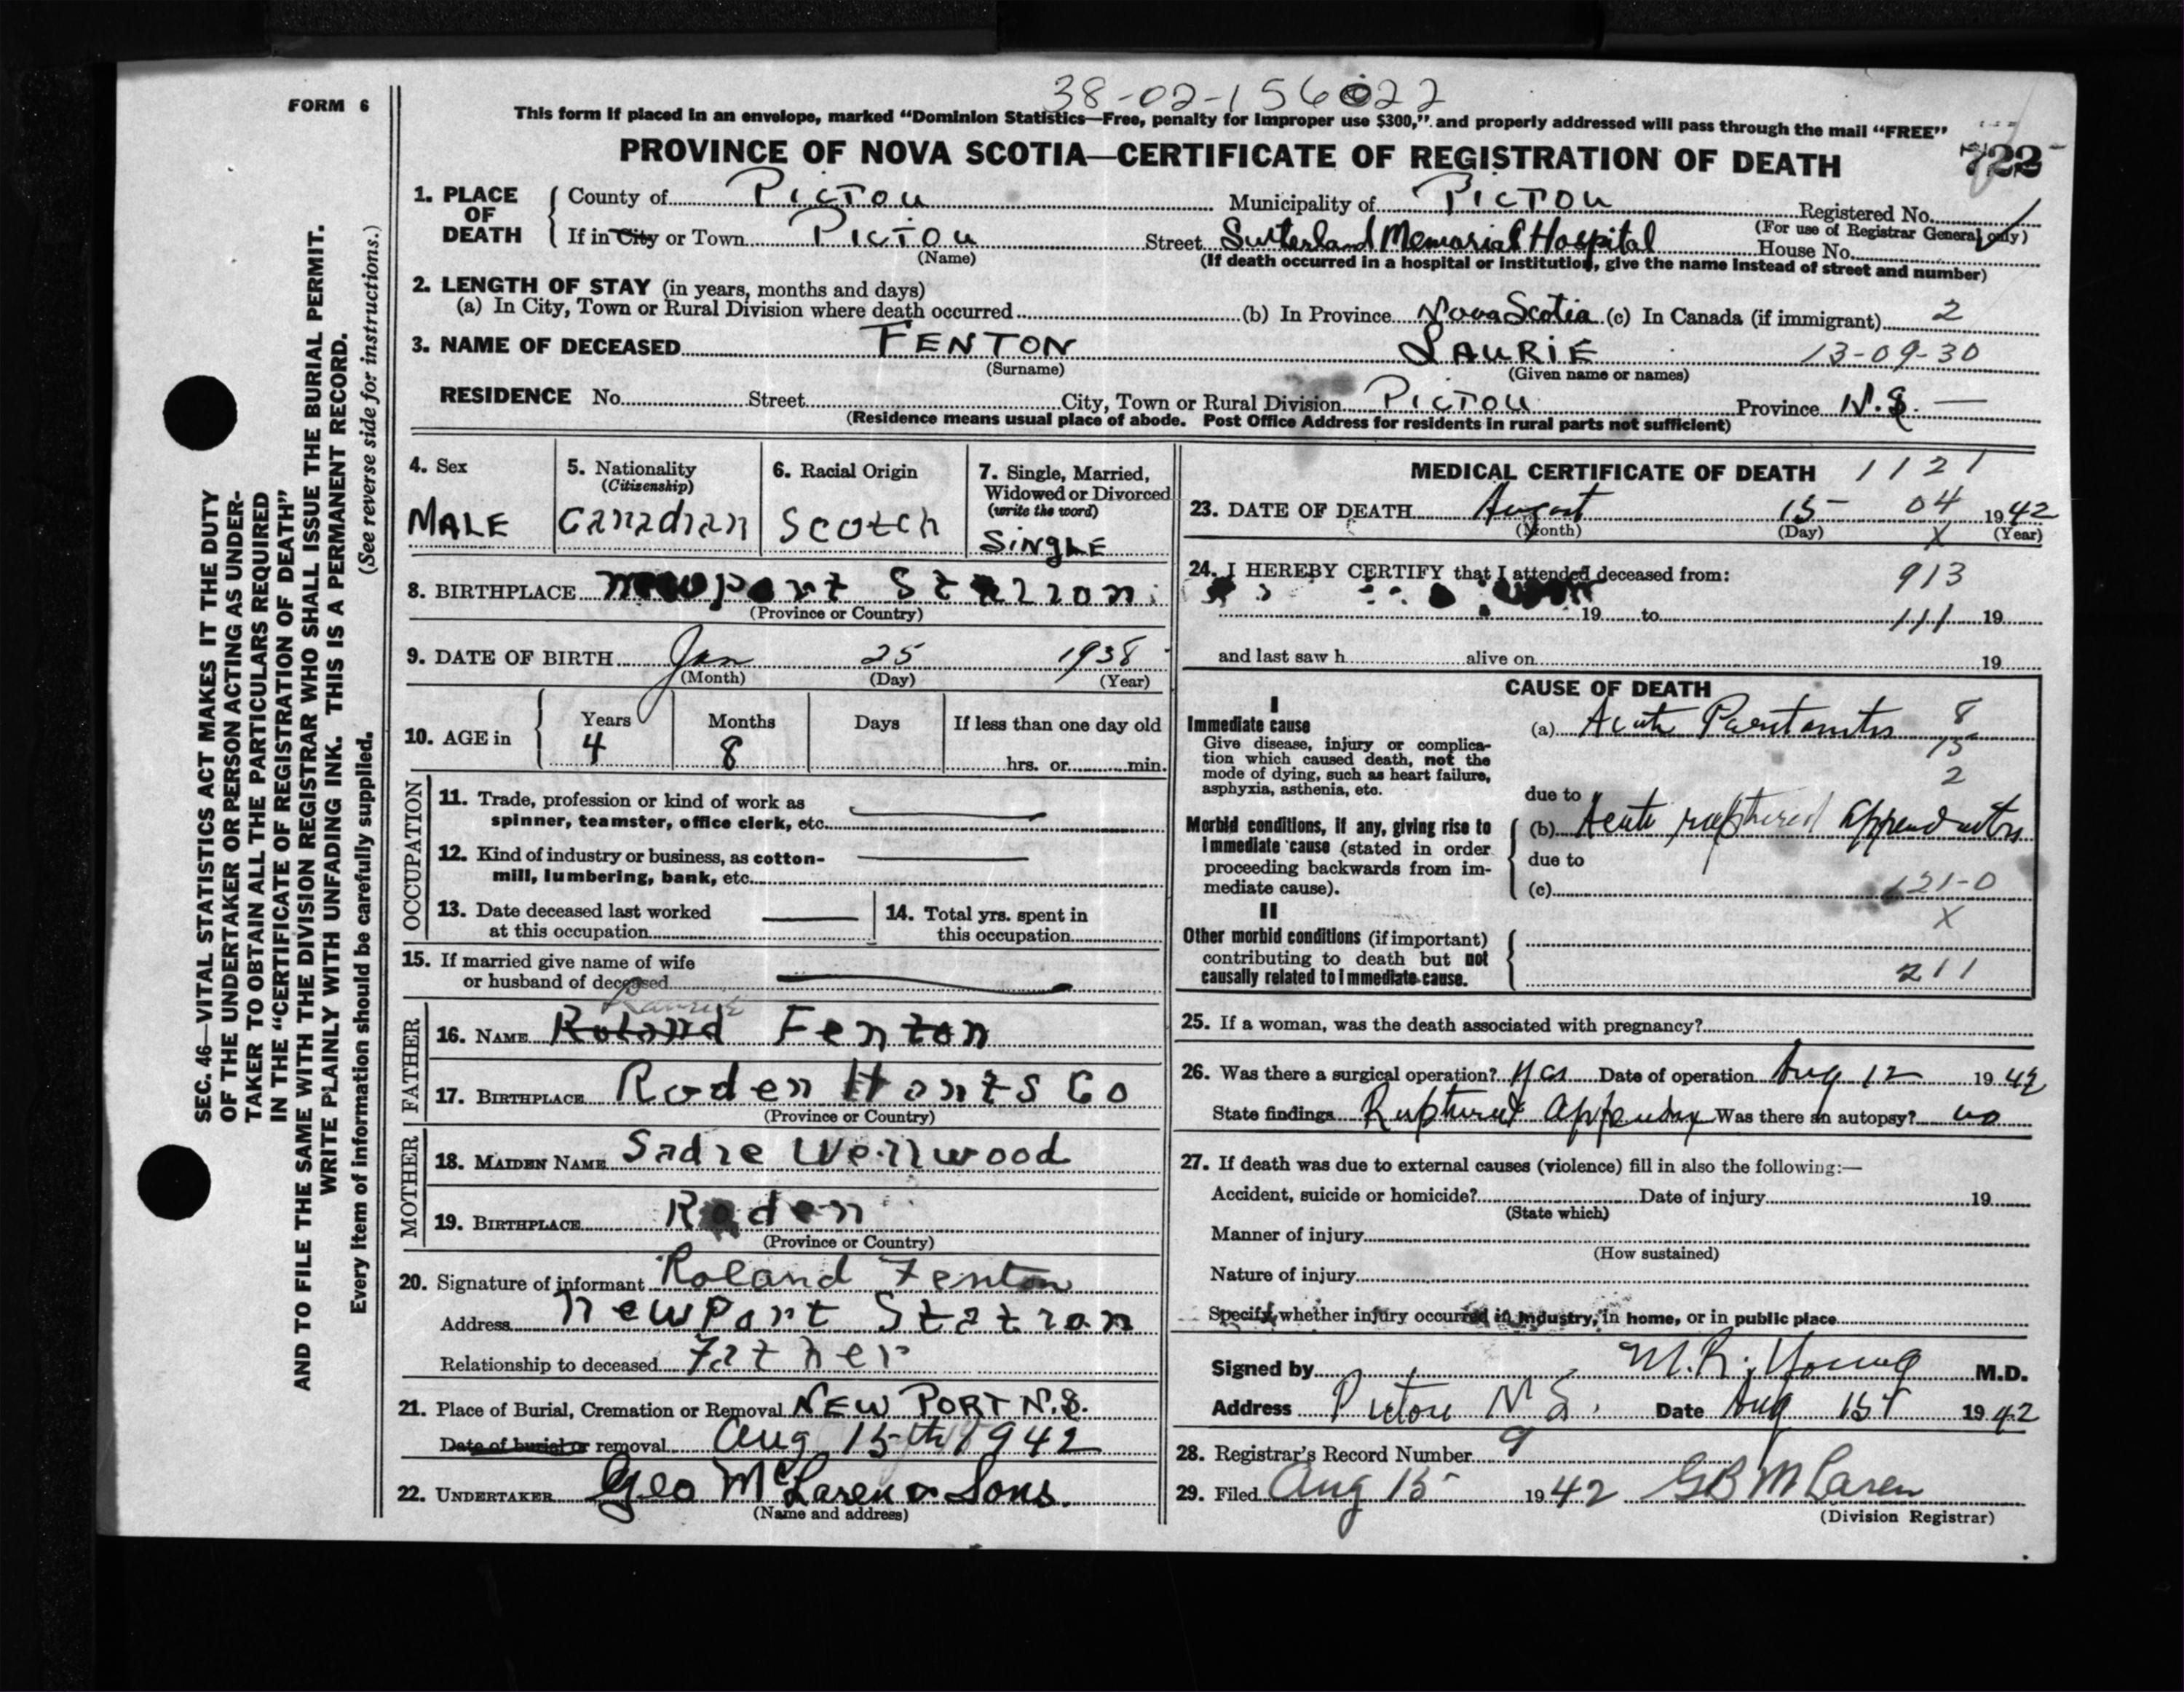 FORM 6
38-02-156022
This form if placed in an envelope, marked "Dominion Statistics—Free, penalty for improper use $300," and properly addressed will pass through the mail "FREE"
PROVINCE OF NOVA SCOTIA—CERTIFICATE OF REGISTRATION OF DEATH
722
1. PLACE OF DEATH
County of PICTOU Municipality of PICTOU Registered No.
(For use of Registrar General only)
If in City or Town PICTOU Street Sutherland Memorial Hospital House No.
(Name) (If death occurred in a hospital or institution, give the name instead of street and number)
2. LENGTH OF STAY (in years, months and days)
(a) In City, Town or Rural Division where death occurred (b) In Province Nova Scotia (c) In Canada (if immigrant) 2
3. NAME OF DECEASED FENTON LAURIE 13-09-30
(Surname) (Given name or names)
RESIDENCE No. Street City, Town or Rural Division PICTOU Province N.S.
(Residence means usual place of abode. Post Office Address for residents in rural parts not sufficient)
4. Sex
MALE
5. Nationality
(Citizenship)
Canadian
6. Racial Origin
Scotch
7. Single, Married, Widowed or Divorced
(write the word)
SINGLE
8. BIRTHPLACE Newport Station
(Province or Country)
9. DATE OF BIRTH Jan 25 1938
(Month) (Day) (Year)
10. AGE in
Years Months Days If less than one day old
4 8 hrs. or min.
OCCUPATION
11. Trade, profession or kind of work as
spinner, teamster, office clerk, etc.
12. Kind of industry or business, as cotton-
mill, lumbering, bank, etc.
13. Date deceased last worked
at this occupation
14. Total yrs. spent in
this occupation
15. If married give name of wife
or husband of deceased
FATHER
16. NAME Roland Fenton
17. BIRTHPLACE Roden Hants Co
(Province or Country)
MOTHER
18. MAIDEN NAME Sadie Wellwood
19. BIRTHPLACE Roden
(Province or Country)
20. Signature of informant Roland Fenton
Address Newport Station
Relationship to deceased Father
21. Place of Burial, Cremation or Removal NEW PORT N.S.
Date of burial or removal Aug 15th 1942
22. UNDERTAKER Geo McLaren & Sons.
(Name and address)
MEDICAL CERTIFICATE OF DEATH 1121
23. DATE OF DEATH August 15 04 1942
(Month) (Day) X (Year)
24. I HEREBY CERTIFY that I attended deceased from: 913
19 to 111 19
and last saw h alive on 19
CAUSE OF DEATH
I
Immediate cause
Give disease, injury or complica-
tion which caused death, not the
mode of dying, such as heart failure,
asphyxia, asthenia, etc.
(a) Acute Peritonitis 8
15
2
due to
Morbid conditions, if any, giving rise to
immediate cause (stated in order
proceeding backwards from im-
mediate cause).
(b) Acute ruptured appendicitis
due to
(c) 121-0
X
II
Other morbid conditions (if important)
contributing to death but not
causally related to immediate cause.
211
25. If a woman, was the death associated with pregnancy?
26. Was there a surgical operation? Yes Date of operation Aug 12 1942
State findings Ruptured appendix Was there an autopsy? no
27. If death was due to external causes (violence) fill in also the following:—
Accident, suicide or homicide? Date of injury 19
(State which)
Manner of injury
(How sustained)
Nature of injury
Specify whether injury occurred in industry, in home, or in public place
Signed by M.R. Young M.D.
Address Pictou N.S. Date Aug 15 1942
28. Registrar's Record Number 9
29. Filed Aug 15 1942 GB McLaren
(Division Registrar)
SEC. 46—VITAL STATISTICS ACT MAKES IT THE DUTY
OF THE UNDERTAKER OR PERSON ACTING AS UNDER-
TAKER TO OBTAIN ALL THE PARTICULARS REQUIRED
IN THE "CERTIFICATE OF REGISTRATION OF DEATH"
AND TO FILE THE SAME WITH THE DIVISION REGISTRAR WHO SHALL ISSUE THE BURIAL PERMIT.
WRITE PLAINLY WITH UNFADING INK. THIS IS A PERMANENT RECORD.
Every item of information should be carefully supplied. (See reverse side for instructions.)